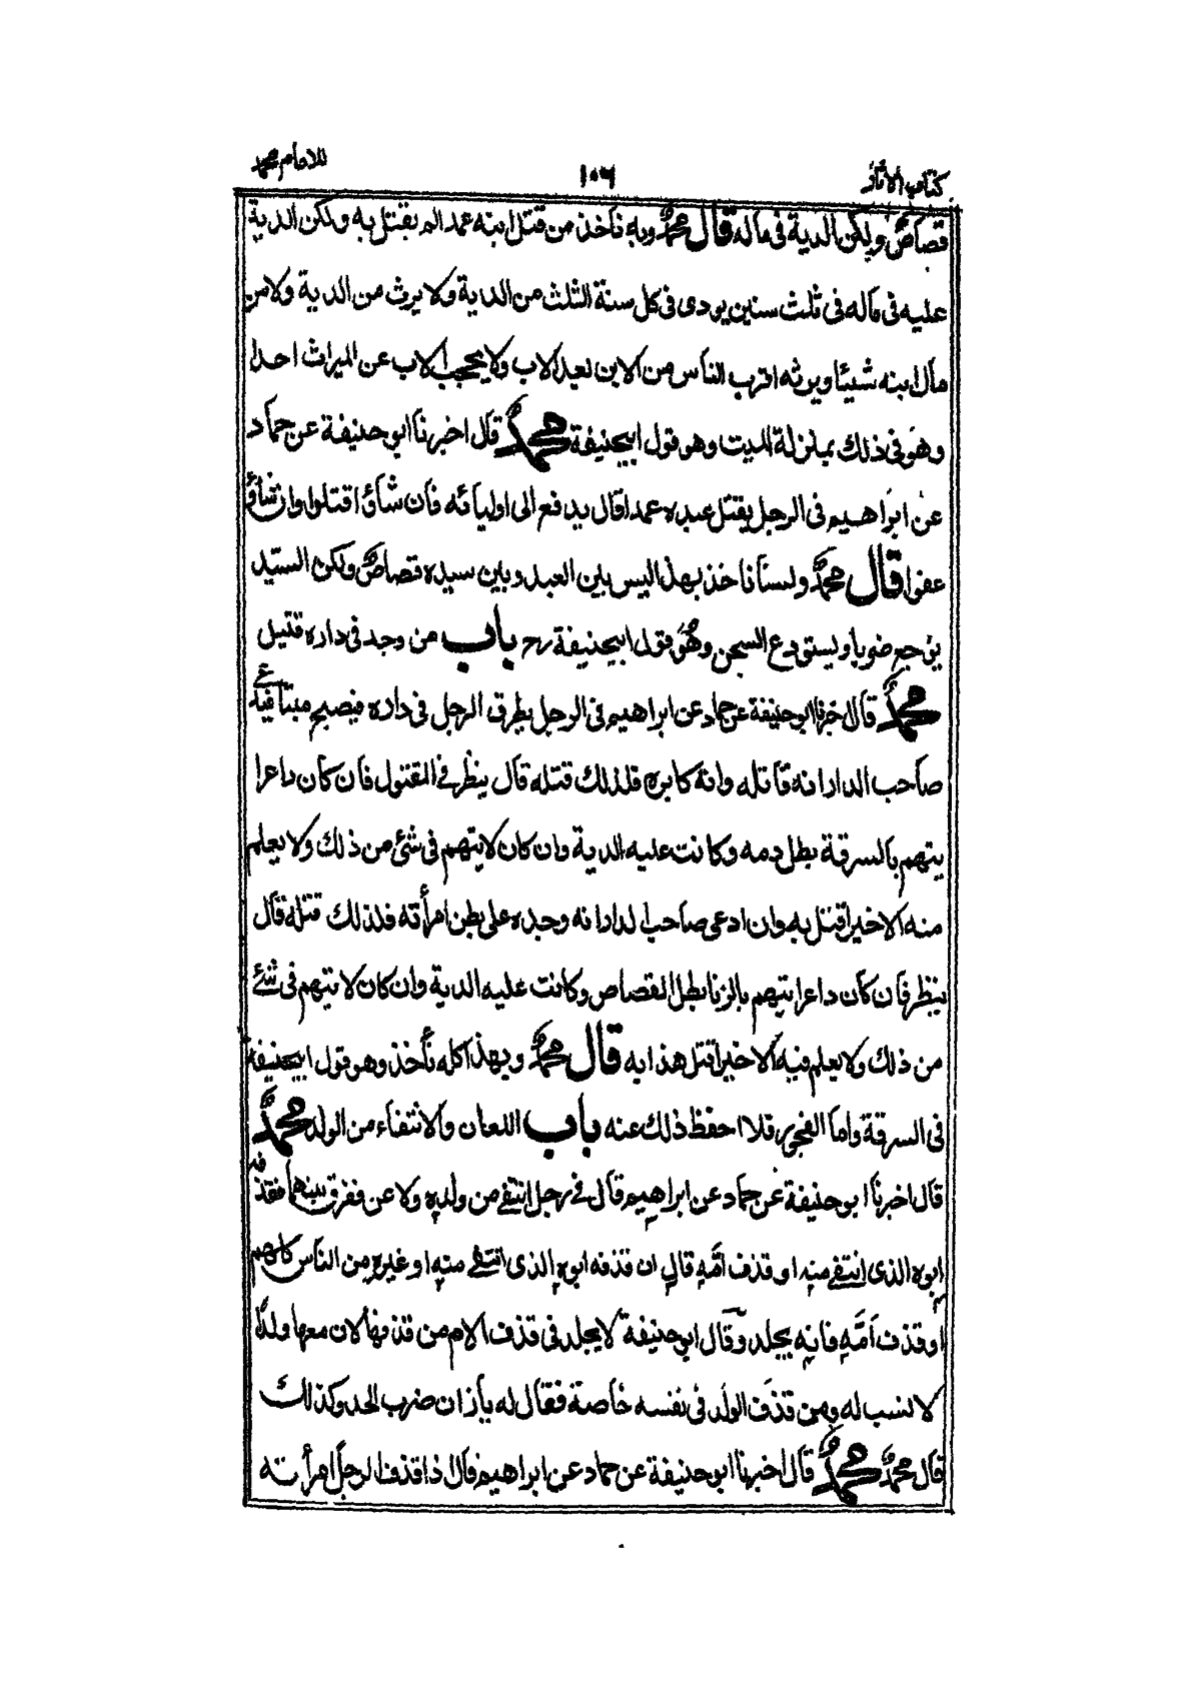 كتاب الاثار ١٠٦ للامام محمد
قصاص ولكن الدية فى ماله قال محمد وبه نأخذ من قتل ابنه عمدا لم يقتل به ولكن الدية
عليه فى ماله فى ثلث سنين يودى فى كل سنة الثلث من الدية ولا يرث من الدية ولا من
مال ابنه شيئا ويرثه اقرب الناس من الابن بعد الاب ولا يحجب الاب عن الميراث احدا
وهو فى ذلك بمنزلة الميت وهو قول ابيحنيفة محمد قال اخبرنا ابو حنيفة عن حماد
عن ابراهيم فى الرجل يقتل عبده عمدا قال يدفع الى اوليائه فان شاؤا قتلوا وان شاؤا
عفوا قال محمد ولسنا ناخذ بهذا ليس بين العبد وبين سيده قصاص ولكن السيد
يوجع ضربا ويستودع السجن وهو قول ابيحنيفة رح باب من وجد فى داره قتيل
محمد قال اخبرنا ابو حنيفة عن حماد عن ابراهيم فى الرجل يطرق الرجل فى داره فيصبح ميتا فيدعى
صاحب الدار انه قاتله وانه كابره فلذلك قتله قال ينظر فى المقتول فان كان داعرا
يتهم بالسرقة بطل دمه وكانت عليه الدية وان كان لا يتهم فى شئ من ذلك ولا يعلم
منه الا خيرا قتل به وان ادعى صاحب الدار انه وجده على بطن امرأته فلذلك قتله قال
ينظر فان كان داعرا يتهم بالزنا بطل القصاص وكانت عليه الدية وان كان لا يتهم فى شئ
من ذلك ولا يعلم فيه الا خيرا قتل هذا به قال محمد وبهذا كله نأخذ وهو قول ابيحنيفة
فى السرقة واما الفجور فلا احفظ ذلك عنه باب اللعان والانتفاء من الولد محمد
قال اخبرنا ابو حنيفة عن حماد عن ابراهيم قال فى رجل انتفى من ولده ولاعن ففرق بينهما فقذفه
ابوه الذى انتفى منه او قذف امّه قال ان قذفه ابوه الذى انتفى منه او غيره من الناس كلهم
او قذف امّه فانه يجلد وقال ابو حنيفة لا يجلد فى قذف الام من قذفها لان معها ولدا
لا نسب له ومن قذف الولد فى نفسه خاصة فقال له يا زان ضرب الحد وكذلك
قال محمد محمد قال اخبرنا ابو حنيفة عن حماد عن ابراهيم قال اذا قذف الرجل امرأته